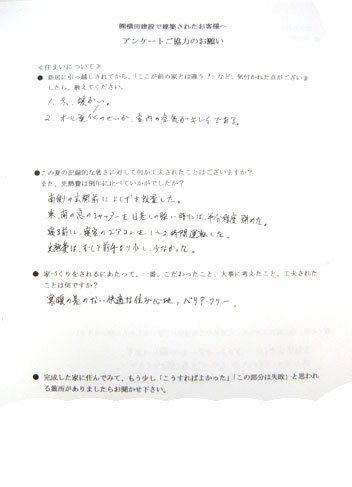 ㈱橋田建設で建築されたお客様へ
アンケートご協力のお願い
≪住まいについて≫
● 新居に引っ越しされてから、「ここが前の家とは違う!」など、気付かれた点がございま
したら、教えてください。
1. 冬、暖かい。
2. オール電化のせいか、室内の空気がきれいである。
●この夏の記録的な暑さに対して何か工夫されたことはございますか?
また、光熱費は例年に比べていかがでしたか?
南側の玄関前によしずを設置した。
東、南の窓のシャッターを日差しの強い時には、半分程度閉めた。
寝る前に、寝室のエアコンを1~2時間運転した。
光熱費は、むしろ前年より少し少なかった。
● 家づくりをされるにあたって、一番、こだわったこと、大事に考えたこと、工夫された
ことは何ですか?
寒暖の差のない快適な住み心地、バリアフリー。
● 完成した家に住んでみて、もう少し「こうすればよかった」「この部分は失敗」と思われ
る箇所がありましたらお聞かせ下さい。